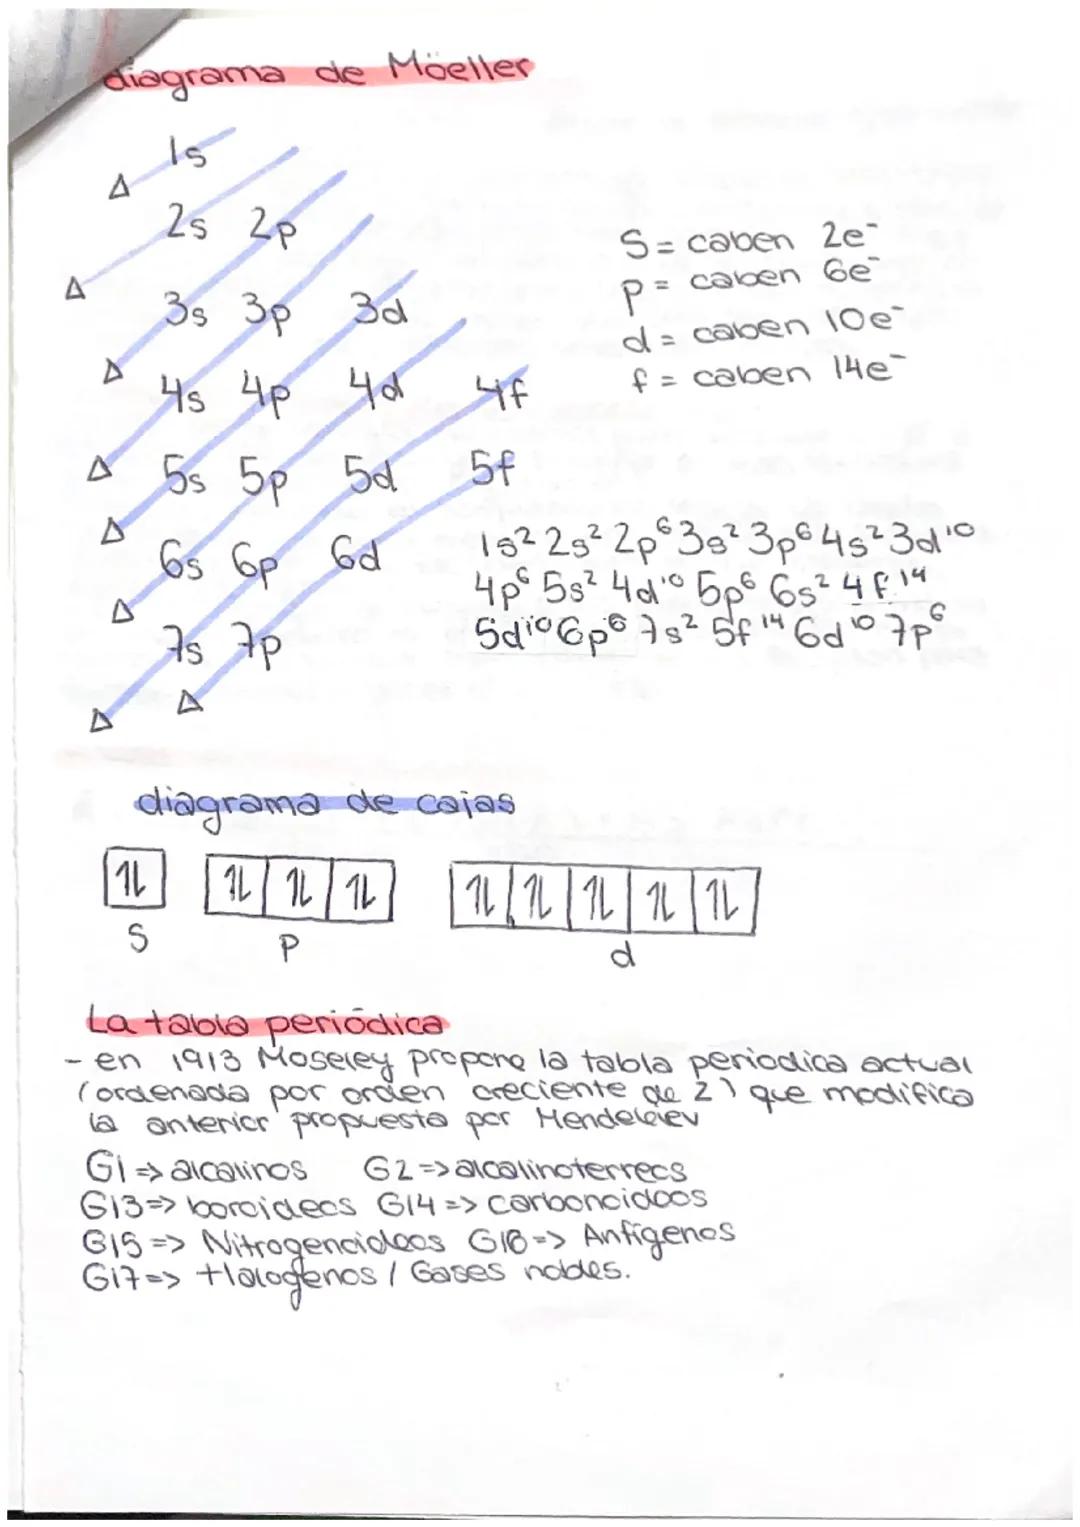 diagrama de Möeller
1s
2s 2p
3s 3p 3d
4s 4p 4d 4f
5s 5p 5d 5f
6s 6p 6d
7s 7p
S = caben 2e⁻
p = caben 6e⁻
d = caben 10e⁻
f = caben 14e⁻
1s² 2s² 2p⁶ 3s² 3p⁶ 4s² 3d¹⁰
4p⁶ 5s² 4d¹⁰ 5p⁶ 6s² 4f¹⁴
5d¹⁰ 6p⁶ 7s² 5f¹⁴ 6d¹⁰ 7p⁶
diagrama de cajas
⥮ ⥮ ⥮ ⥮ ⥮ ⥮ ⥮ ⥮ ⥮
S p d
La tabla periódica
- en 1913 Moseley propone la tabla periodica actual
(ordenada por orden creciente de Z) que modifica
la anterior propuesta por Mendeleiev
G1 => alcalinos G2 => alcalinoterreos
G13 => boroideos G14 => carbonoideos
G15 => Nitrogenoideos G16 => Anfígenos
G17 => Halogenos / Gases nobles.